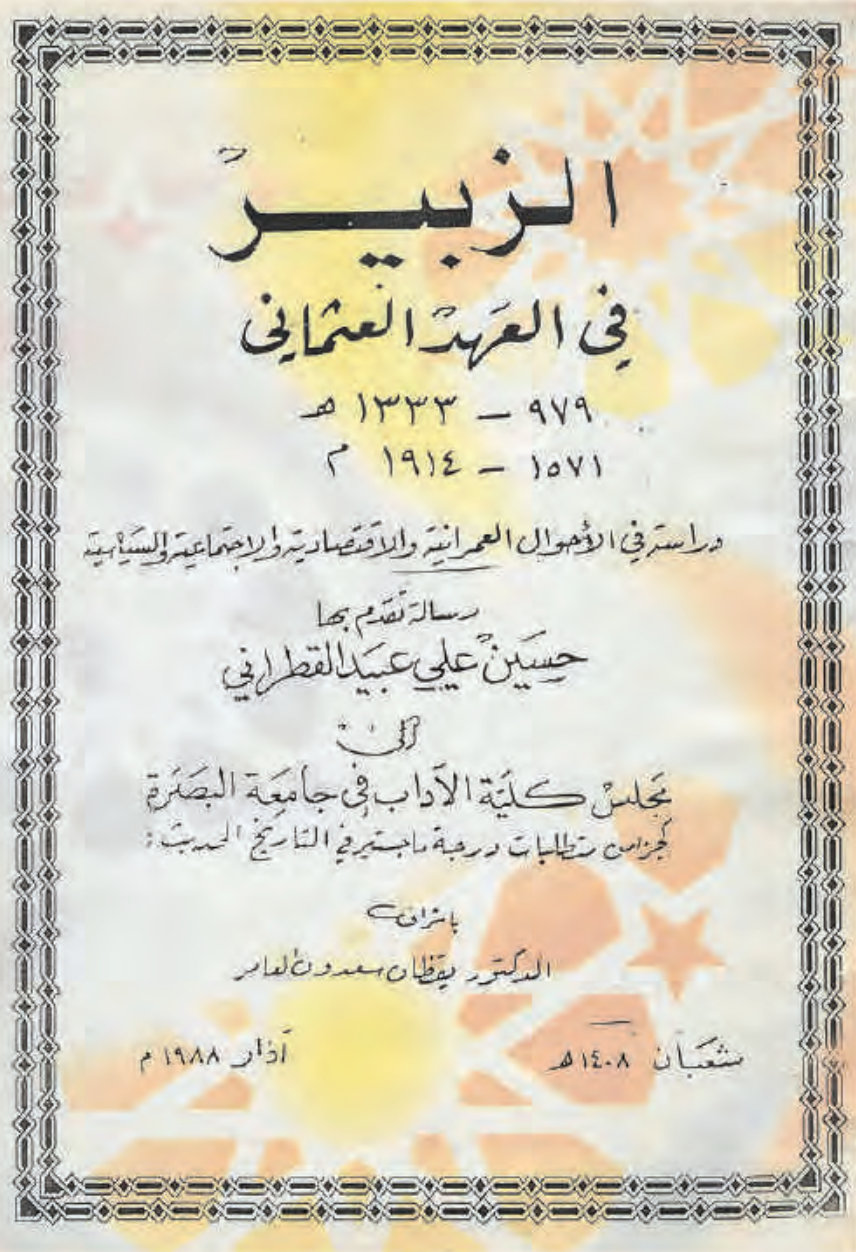 الزبير
في العهد العثماني
٩٧٩ – ١٣٣٣ هـ
١٥٧١ – ١٩١٤ م
دراسة في الأحوال العمرانية والاقتصادية والاجتماعية والسياسية
رسالة تقدم بها
حسين علي عبيد القطراني
إلى
مجلس كلية الآداب في جامعة البصرة
كجزء من متطلبات درجة ماجستير في التاريخ الحديث :
باشراف
الدكتور يقظان سعدون العامر
شعبان ١٤٠٨ هـ
آذار ١٩٨٨ م